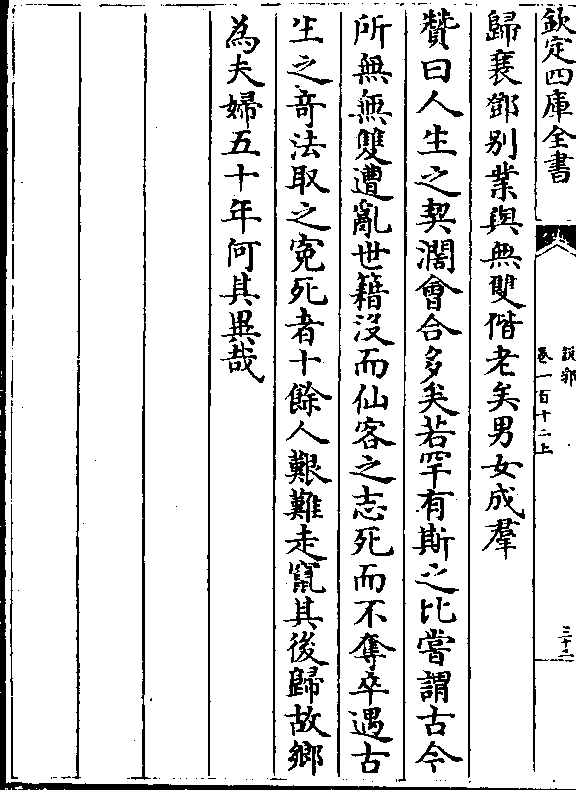 欽定四庫全書
說郛
卷一百十二上
三十二
歸襄鄧别業與無雙偕老矣男女成羣
贊曰人生之契濶㑹合多矣若罕有斯之比嘗謂古今
所無無雙遭亂世籍没而仙客之志死而不奪卒遇古
生之竒法取之寃死者十餘人艱難走竄其後歸故鄉
為夫婦五十年何其異哉